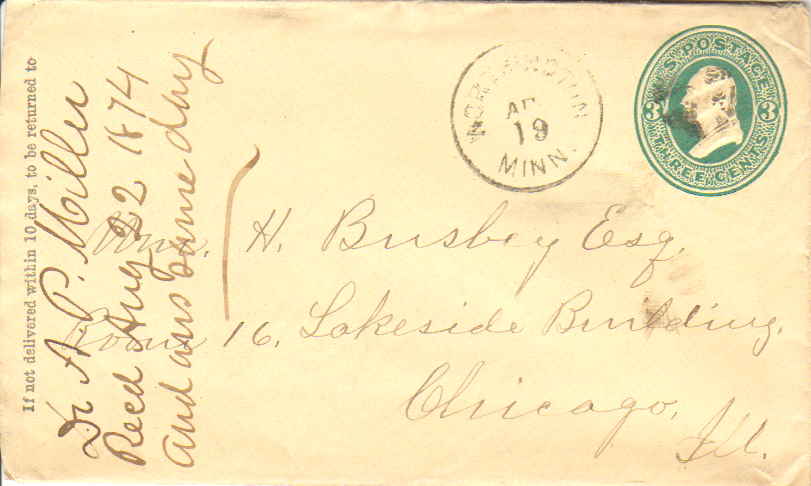 If not delivered within 10 days, to be returned to
Dr A. P. Miller
Recd Aug 22 1874
and ans same day
WORTHINGTON
19
MINN.
U.S. POSTAGE
3 3
THREE CENTS
Wm. H. Busbey Esq.
Room 16, Lakeside Building,
Chicago,
Ill.